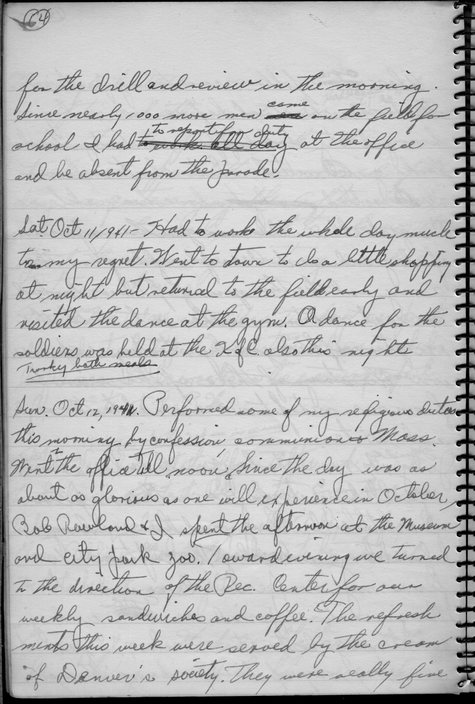 14
for the drill and review in the morning.
Since nearly 1000 more men came on the field for
school I had to report for duty at the office
and be absent from the parade.
Sat Oct 11/1941 - Had to work the whole day much
to my regret. Went to town to do a little shopping
at night but returned to the field early and
visited the dance at the gym. A dance for the
soldiers was held at the also this night
Turkey both meals.
Sun. Oct 12, 1941. Performed some of my religious duties
this morning by confession, communion & Mass.
Went to the office till noon. Since the day was as
about as glorious as one will experience in October,
Bob Rowland & I spent the afternoon at the Museum
and city park zoo. Toward evening we turned
to the direction of the Rec. Center for our
weekly sandwiches and coffee. The refresh
ments this week were served by the cream
of Denver's society. They were really fine